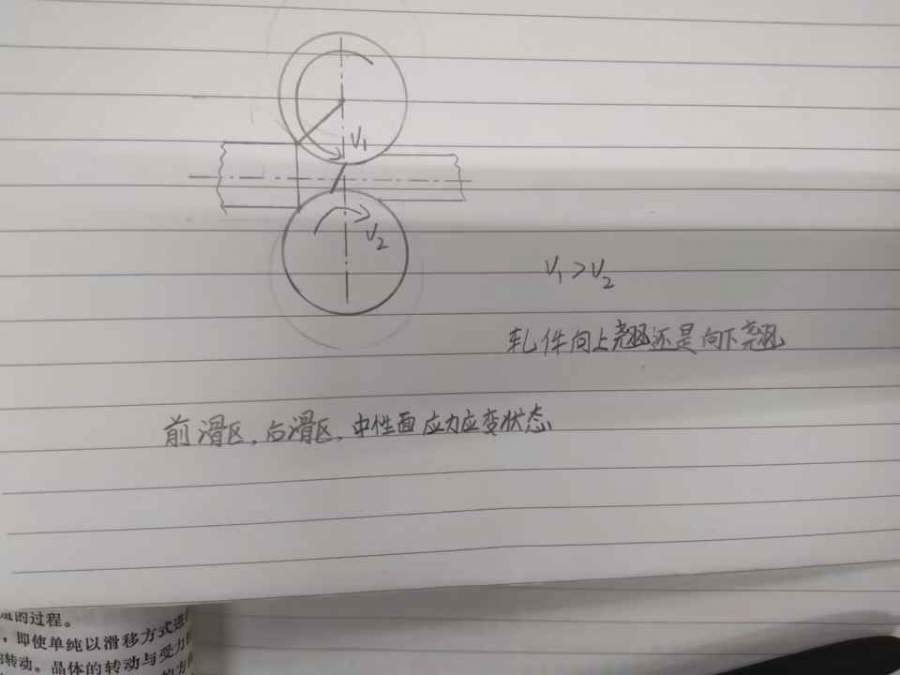 V₁
V₂
V₁>V₂
轧件向上翘还是向下翘
前滑区,后滑区,中性面应力应变状态
的过程。
,即使单纯以滑移方式进
转动。晶体的转动与受力